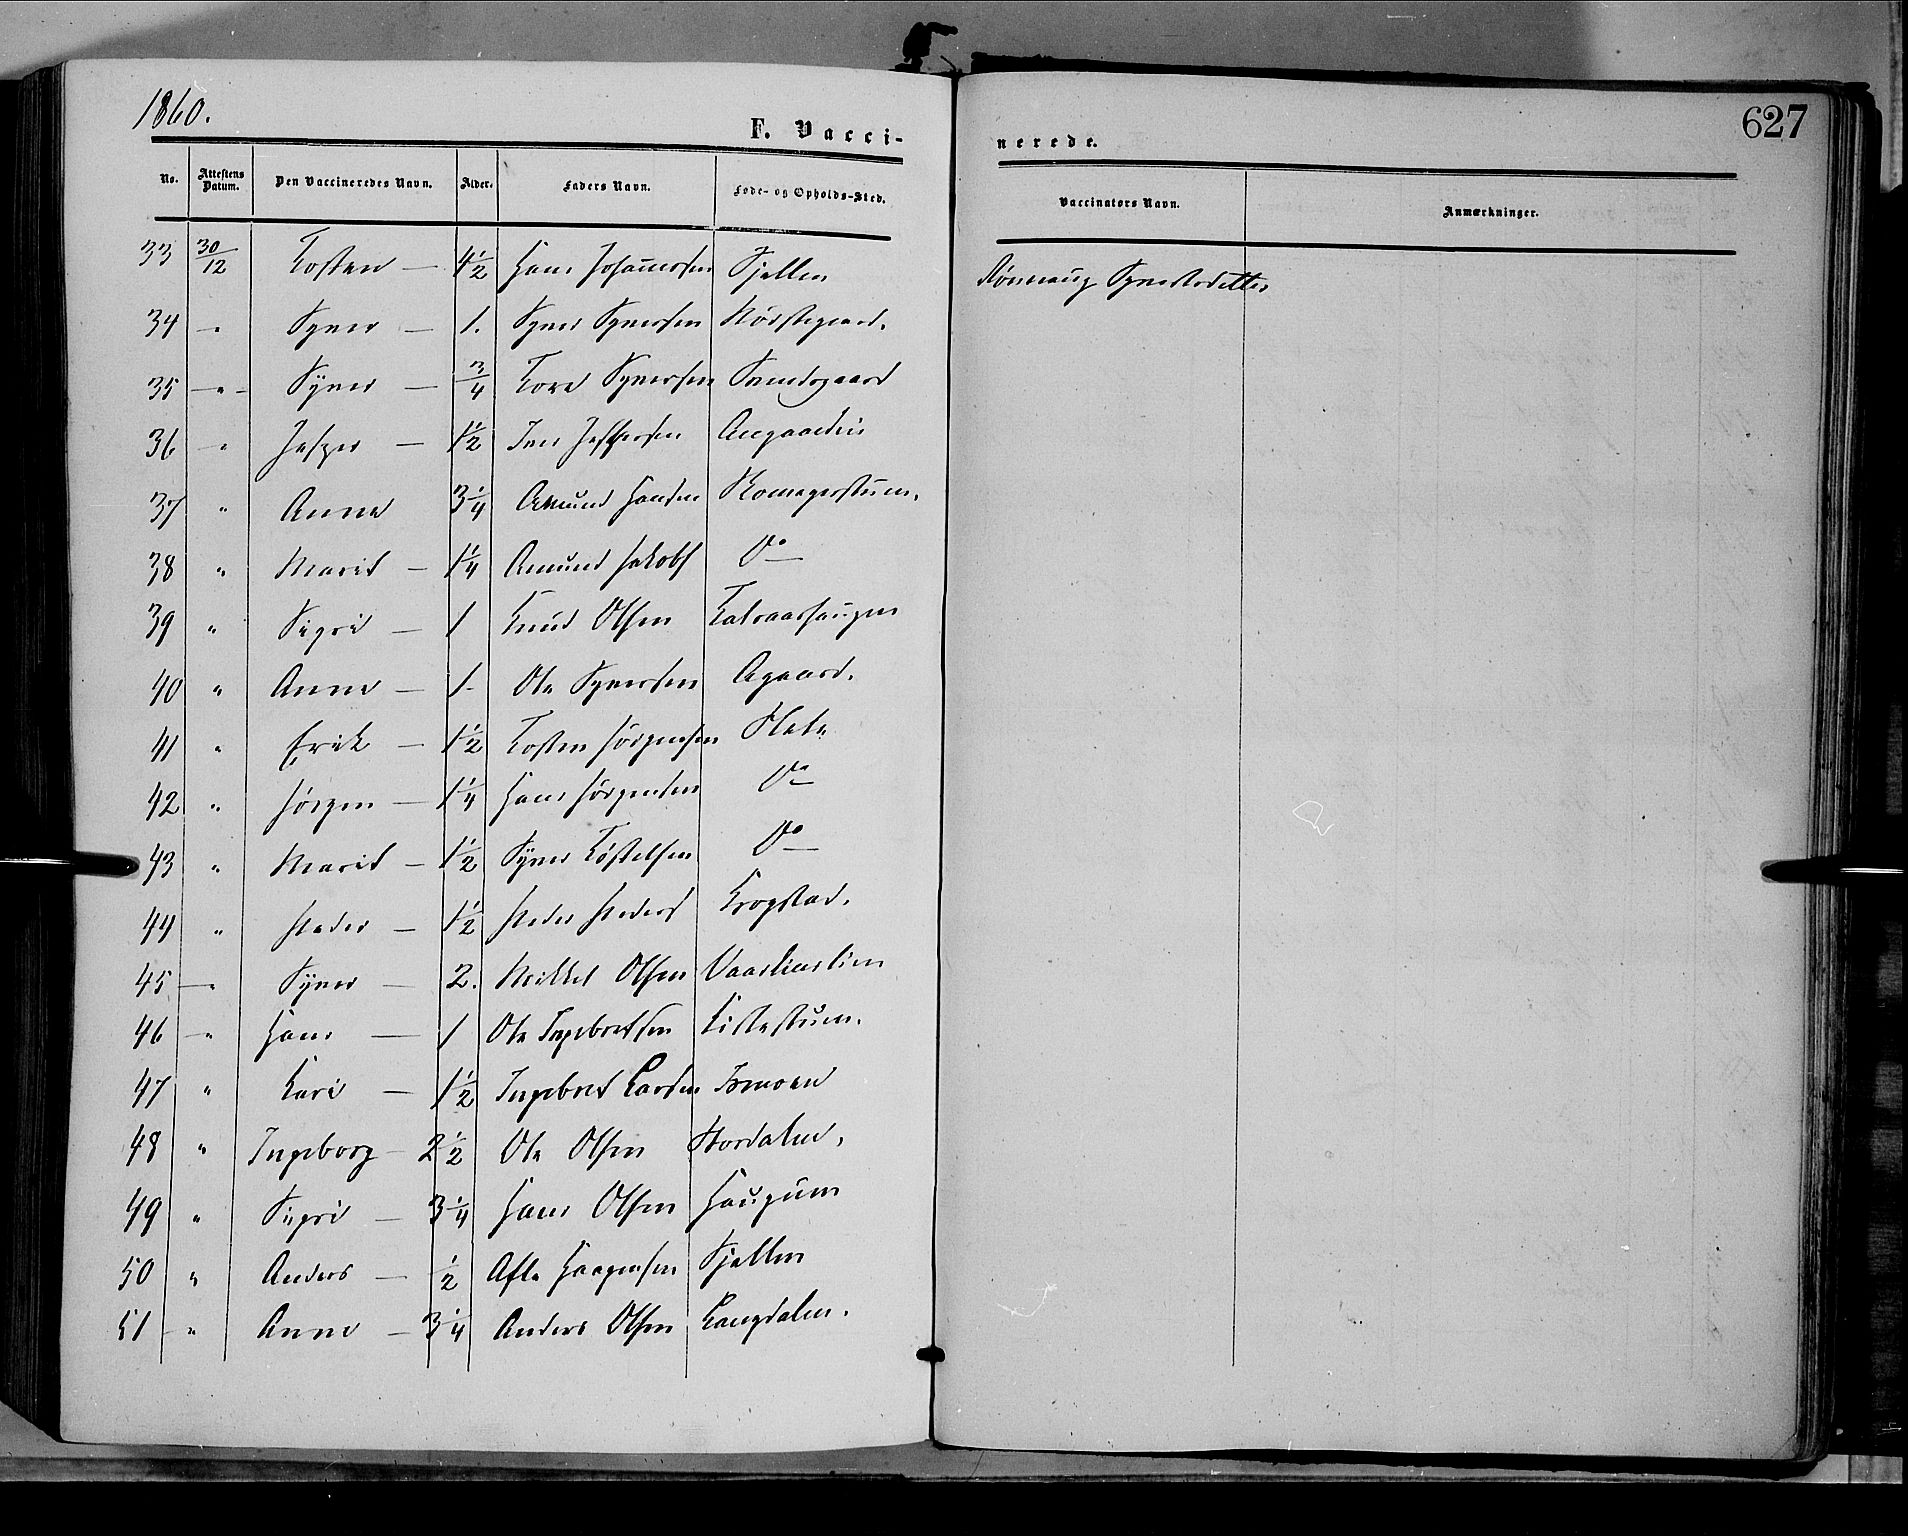 1860.
627
F. Vacci-
nerede.
No. Attestens Datum. Den Vaccineredes Navn. Alder. Faders Navn. Føde- og Opholds-Sted. Vaccinators Navn. Anmærkninger.
33 30/12 Tosten — 4 1/2 Hans Johannesen Fjellen Rønnaug Syverdatter
34 -"- Syver — 1. Syver Syversen Nørstegaard.
35 -"- Syver — 3/4 Tore Syversen
36 -"- Jesper — 1 1/2 Iver Jespersen
37 " Anne 3/4 Amund Hansen
38 " Marit — 1 1/4 Amund Jakobs Do
39 " Sigri — 1 Knud Olsen
40 " Anne — 1- Ole Syversen Agaard.
41 " Erik — 1 1/2 Tosten Jørgensen
42 " Jørgen — 1 1/4 Hans Jørgensen Do
43 " Marit — 1 1/2 Syver Do
44 " Peder — 1 1/2 Peder Peders Krogstad.
45 -"- Syver — 2. Mikkel Olsen
46 -"- Hans — 1 Ole Ingebretsen Kistestuen.
47 " Kari — 1 1/2 Ingebret Larsen
48 " Ingeborg — 2 1/2 Ole Olsen Nordalen,
49 " Sigri — 3/4 Hans Olsen Haugum
50 " Anders — 1/2 Asle Haagensen Fjellen
51 -"- Anne — 3/4 Anders Olsen Langdalen.